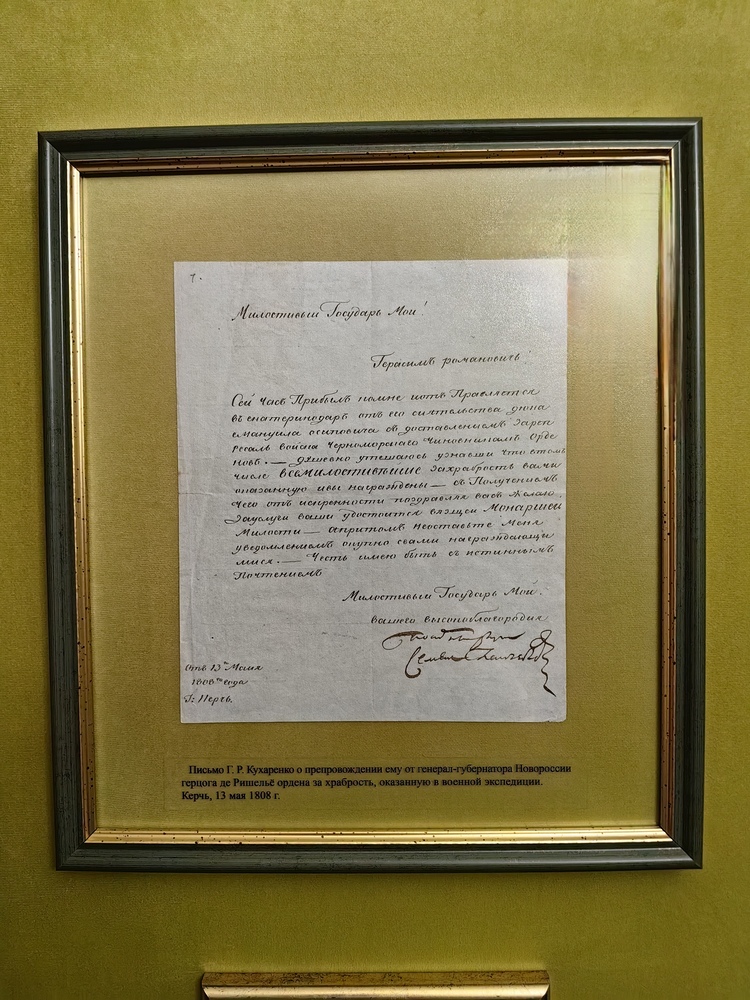 7.
Милостивый Государь Мой!
Герасимъ романовичь!
Сей часъ Прибылъ комне Правляется
въ екатеринодаръ отъ его сиятельства дюка
емануила осиповича съ доставлениемъ
войска черноморскаго чиновникамъ Орде
новъ. — душевно утешаюсь узнавши что втомъ
числе всемилостивейше захрабрость вами
оказанную ивы награждены — съ Получениемъ
чего отъ искренности поздравляя васъ Желаю
Зауслуги ваши удостоится вящей Монаршей
Милости — апритомъ неоставьте Меня
уведомлениемъ купно свами награждающи
мися. — Честь имею быть съ истиннымъ
Почтениемъ
Милостивый Государь Мой.
вашего высокоблагородия
Отъ 13го Маия
1808го года
Г: Керчь.
Письмо Г. Р. Кухаренко о препровождении ему от генерал-губернатора Новороссии
герцога де Ришельё ордена за храбрость, оказанную в военной экспедиции.
Керчь, 13 мая 1808 г.